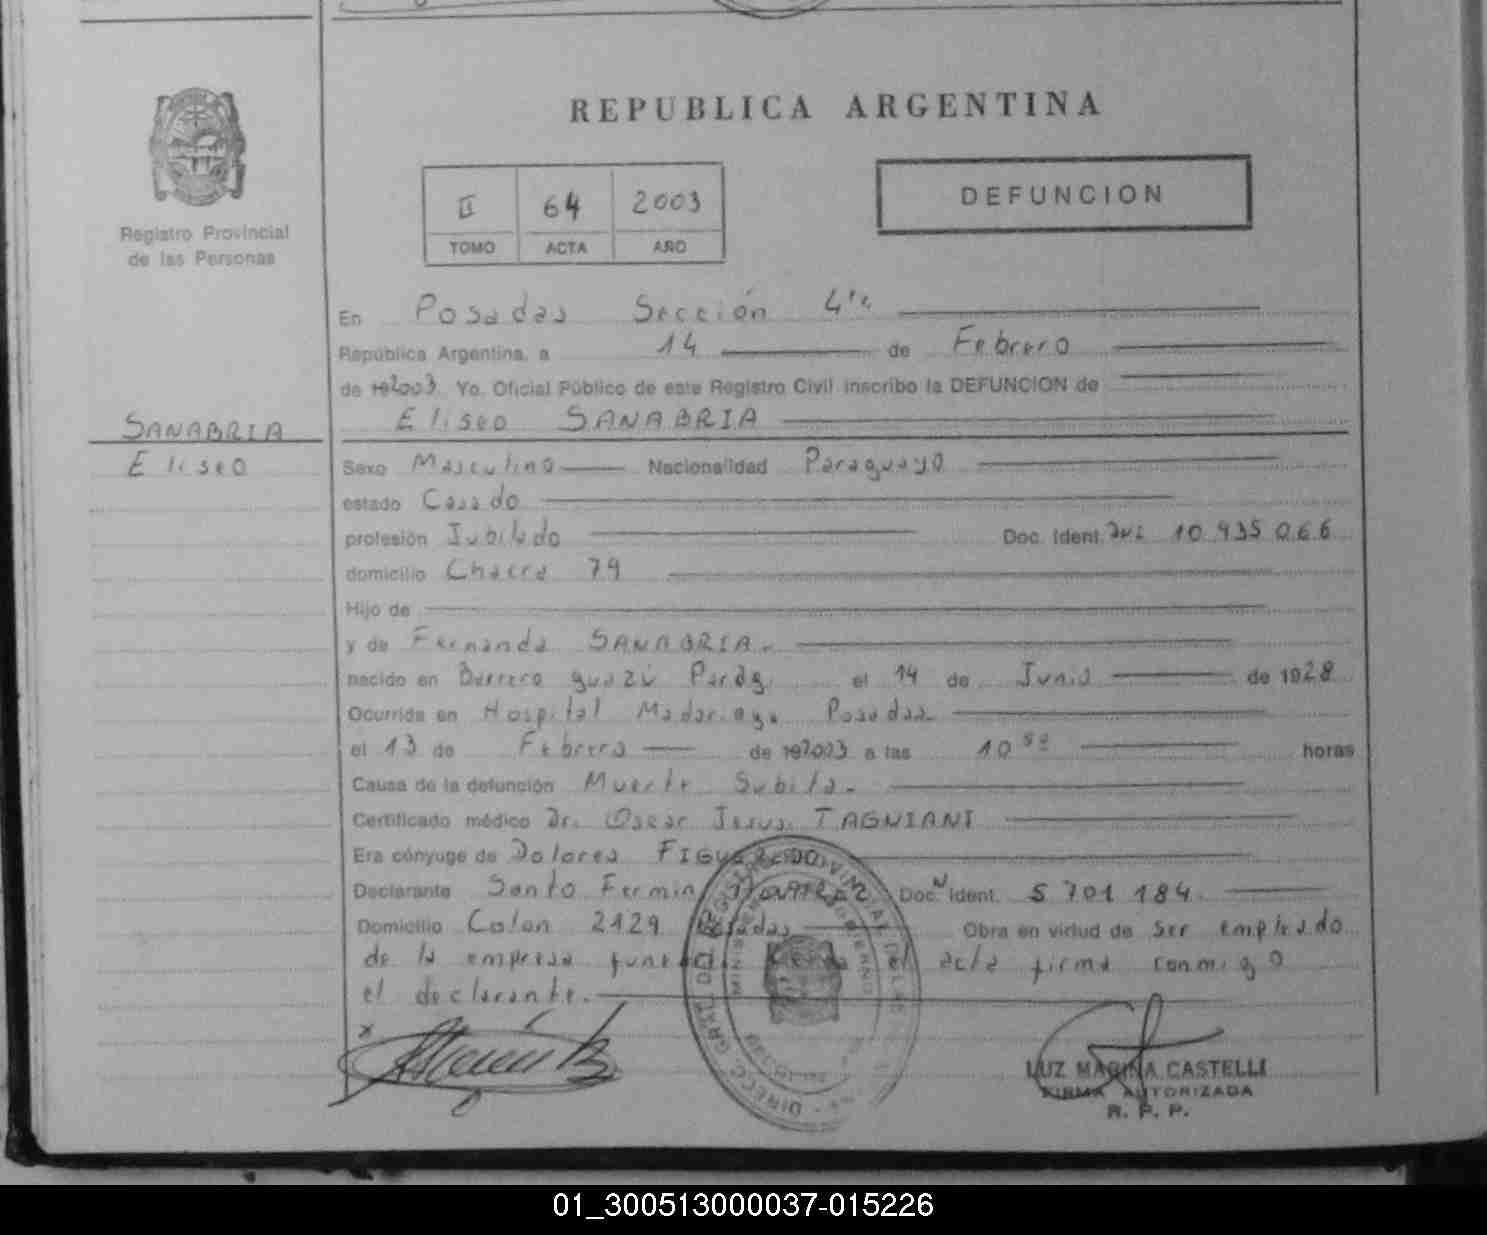 REPUBLICA ARGENTINA
II 64 2003
TOMO ACTA AÑO
DEFUNCION
Registro Provincial
de las Personas
En Posadas Sección 4ta
República Argentina, a 14 de Febrero
de 192003. Yo, Oficial Público de este Registro Civil inscribo la DEFUNCION de
Eliseo SANABRIA
SANABRIA
Eliseo
Sexo Masculino Nacionalidad Paraguayo
estado Casado
profesión Jubilado Doc. Ident. DNI 10.935.066
domicilio Chacra 79
Hijo de
y de Fernanda SANABRIA.
nacido en Barrero guazú Parag. el 14 de Junio de 1928
Ocurrida en Hospital Madariaga Posadas
el 13 de Febrero de 192003 a las 10 50 horas
Causa de la defunción Muerte Subita.
Certificado médico Dr. Oscar Jesus TAGNIANI
Era cónyuge de Dolores FIGUEREDO
Declarante Santo Fermin Doc. Ident. 5 701 184.
Domicilio Colon 2129 Posadas Obra en virtud de ser empleado
de la empresa el acta firma conmigo
el declarante.
x
LUZ MARINA CASTELLI
FIRMA AUTORIZADA
R. P. P.
01_300513000037-015226